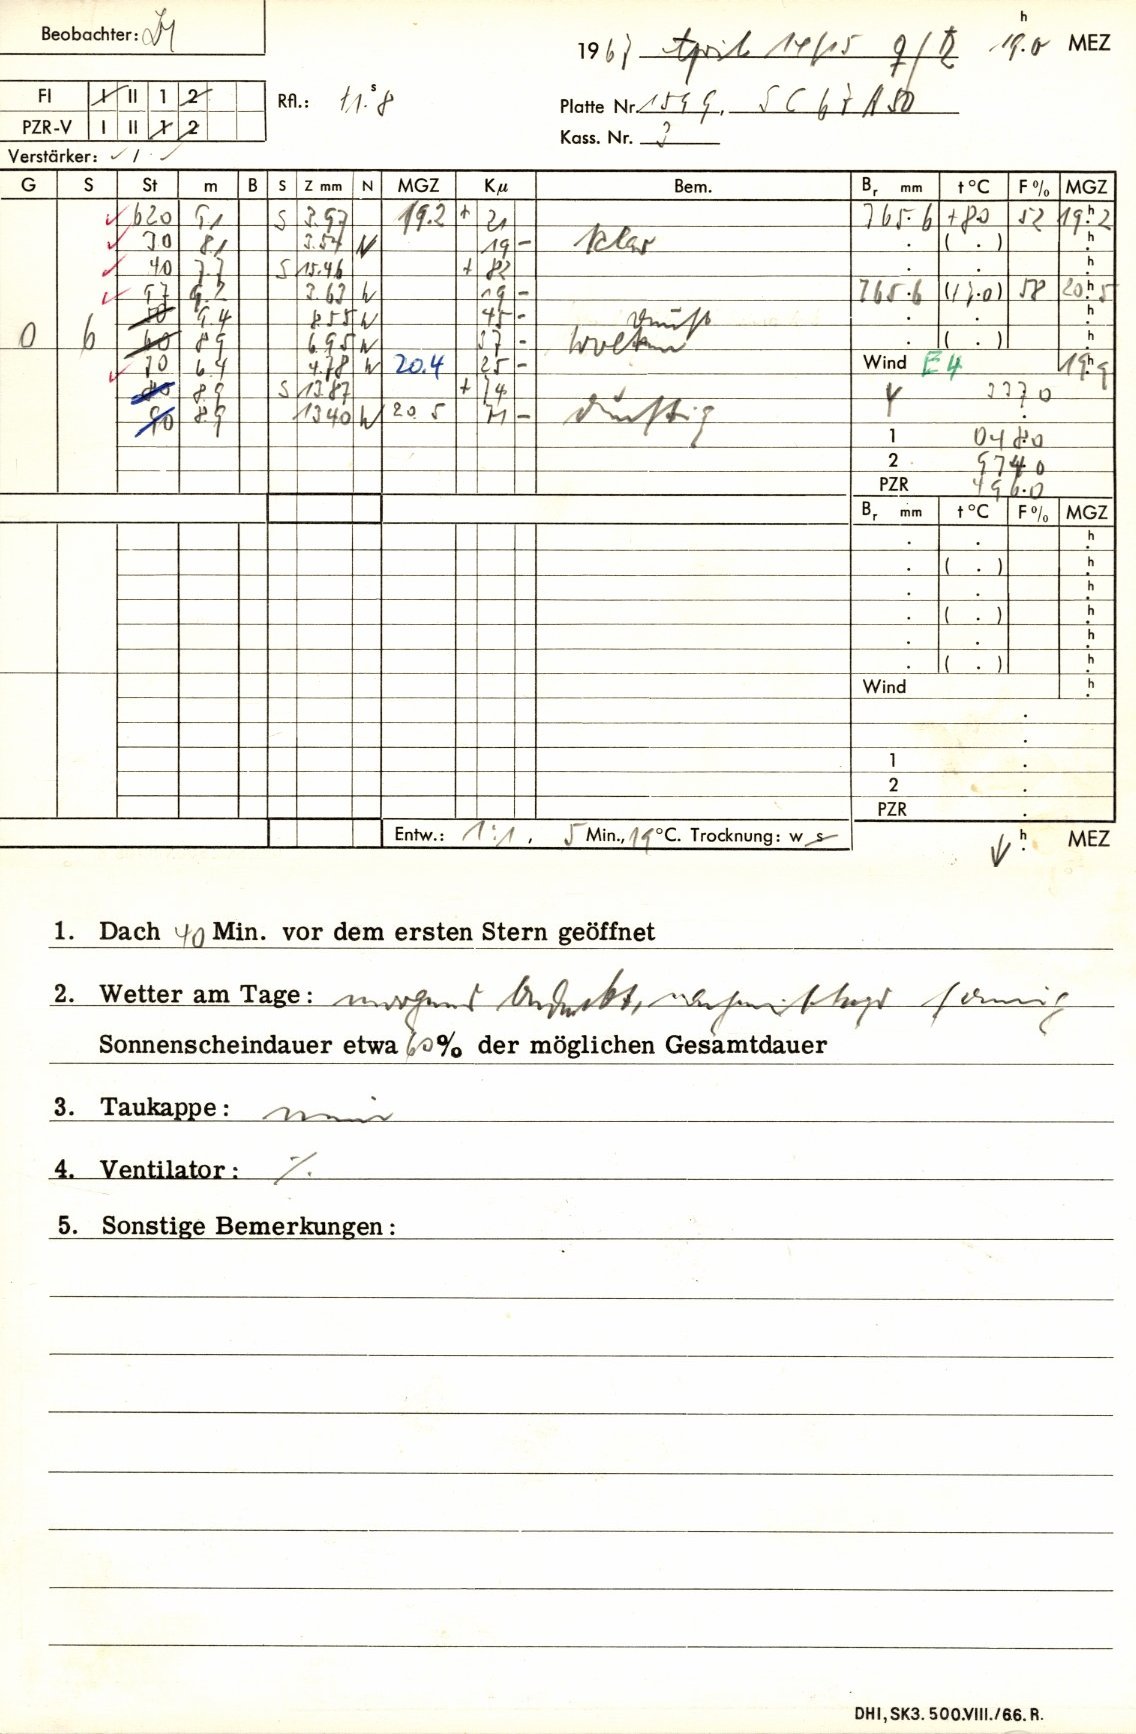 Beobachter:
h
1967 April 14/15 ♀/♄ 19.0 MEZ
FI I II 1 2
Rfl.: 11.s8
PZR-V I II 1 2
Platte Nr. 1599. SC67A50
Kass. Nr. 3
Verstärker: I
G S St m B S Z mm N MGZ Kµ Bem. Br mm t °C F% MGZ
620 9.1 S 3.97 19.2 + 21 765.6 +8.0 52 19.h2
30 8.1 3.54 N 19 - klar . ( . ) h
40 7.7 S 15.46 + 82 . . h
57 9.2 3.63 N 19 - 765.6 (17.0) 58 20.h5
50 9.4 8.55 N 45 - Dunst . . h
0 6 60 8.9 6.95 N 37 - Wolken . ( . ) h
70 6.4 4.78 N 20.4 25 - Wind E4 19.h9
80 8.9 S 13.87 + 74 3370
90 8.9 1340 N 20 5 71 - dunstig
1 048.0
2 974.0
PZR 496.0
Br mm t °C F% MGZ
. . h
. ( . ) h
. . h
. ( . ) h
. . h
. ( . ) h
Wind h
.
.
1 .
2 .
PZR .
Entw.: 1:1, 5 Min., 19 °C. Trocknung: w s
h MEZ
1. Dach 40 Min. vor dem ersten Stern geöffnet
2. Wetter am Tage: morgens bedeckt, nachmittags sonnig
Sonnenscheindauer etwa 60% der möglichen Gesamtdauer
3. Taukappe: nein
4. Ventilator: ∕.
5. Sonstige Bemerkungen:
DHI, SK3. 500.VIII./66. R.